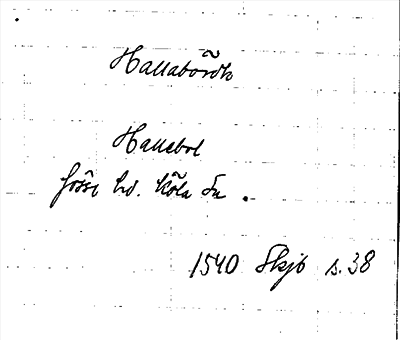 Hallabõrdh
Hallebol
Jösse hd. Köla sn.
1540 Skjb s. 38